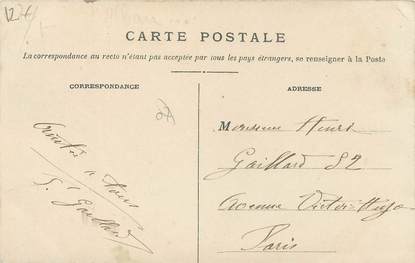 CARTE POSTALE
La correspondance au recto n'étant pas acceptée par tous les pays étrangers, se renseigner à la Poste
CORRESPONDANCE
Amitiés à tous
S. Gaillard
ADRESSE
Monsieur Henri
Gaillard 82
Avenue Victor Hugo
Paris